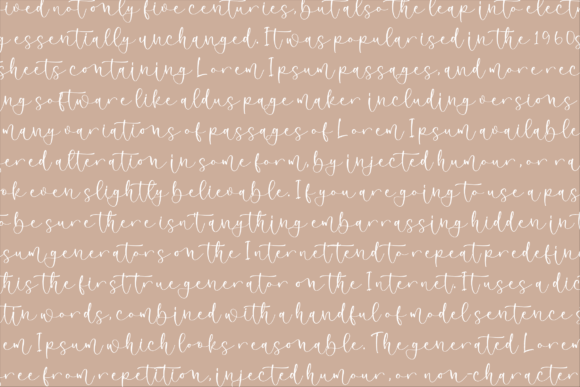 ived not only five centuries, but also the leap into electr
g essentially unchanged. It was popularised in the 1960s
sheets containing Lorem Ipsum passages, and more rec
ng software like aldus page maker including versions
many variations of passages of Lorem Ipsum available
ered alteration in some form, by injected humour, or ra
ok even slightly believable. If you are going to use a pas
o be sure there isn't anything embarrassing hidden in t
sum generators on the Internet tend to repeat predefin
his the first true generator on the Internet. It uses a dic
tin words, combined with a handful of model sentence s
em Ipsum which looks reasonable. The generated Lorem
ree from repetition, injected humour, or non-character